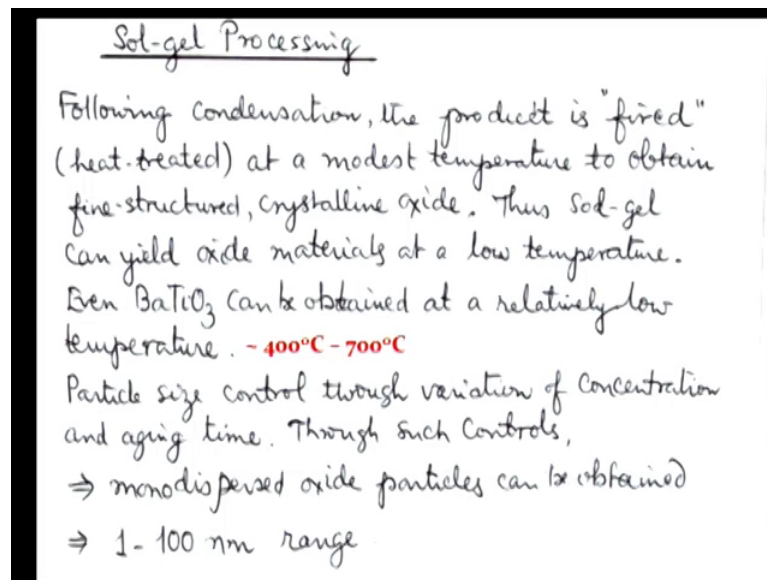 Sol-gel Processing
Following condensation, the product is "fired"
(heat-treated) at a modest temperature to obtain
fine-structured, crystalline oxide. Thus Sol-gel
can yield oxide materials at a low temperature.
Even BaTiO₃ can be obtained at a relatively low
temperature. ~ 400°C - 700°C
Particle size control through variation of concentration
and aging time. Through such controls,
⇒ monodispersed oxide particles can be obtained
⇒ 1 - 100 nm range